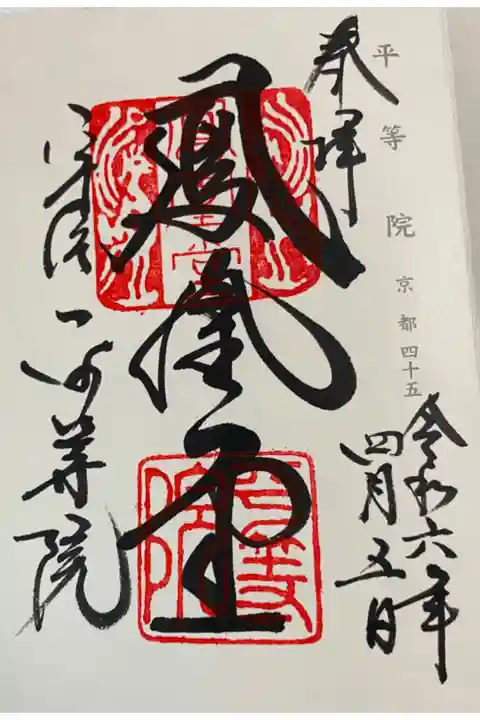 平等院 京都四十五
令和六年
四月五日
奉拝
鳳凰堂
宇治 平等院
鳳凰堂
平等院